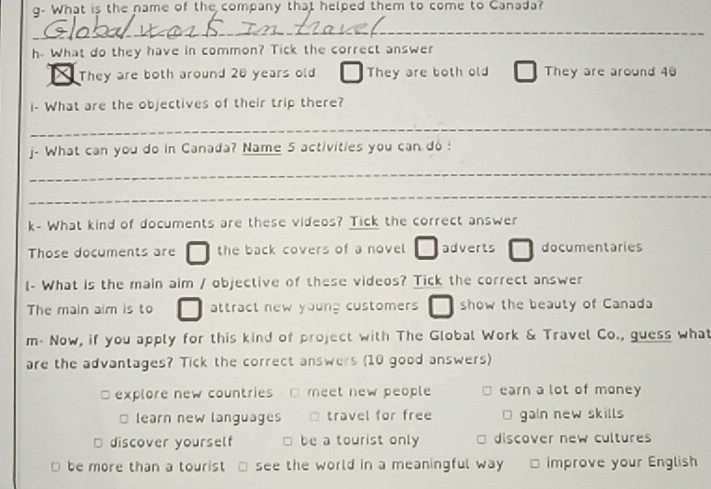 g- What is the name of the company that helped them to come to Canada?
Global work In travel
h- What do they have in common? Tick the correct answer
They are both around 20 years old They are both old They are around 40
i- What are the objectives of their trip there?
j- What can you do in Canada? Name 5 activities you can do :
k- What kind of documents are these videos? Tick the correct answer
Those documents are the back covers of a novel adverts documentaries
l- What is the main aim / objective of these videos? Tick the correct answer
The main aim is to attract new young customers show the beauty of Canada
m- Now, if you apply for this kind of project with The Global Work & Travel Co., guess what
are the advantages? Tick the correct answers (10 good answers)
explore new countries meet new people earn a lot of money
learn new languages travel for free gain new skills
discover yourself be a tourist only discover new cultures
be more than a tourist see the world in a meaningful way improve your English